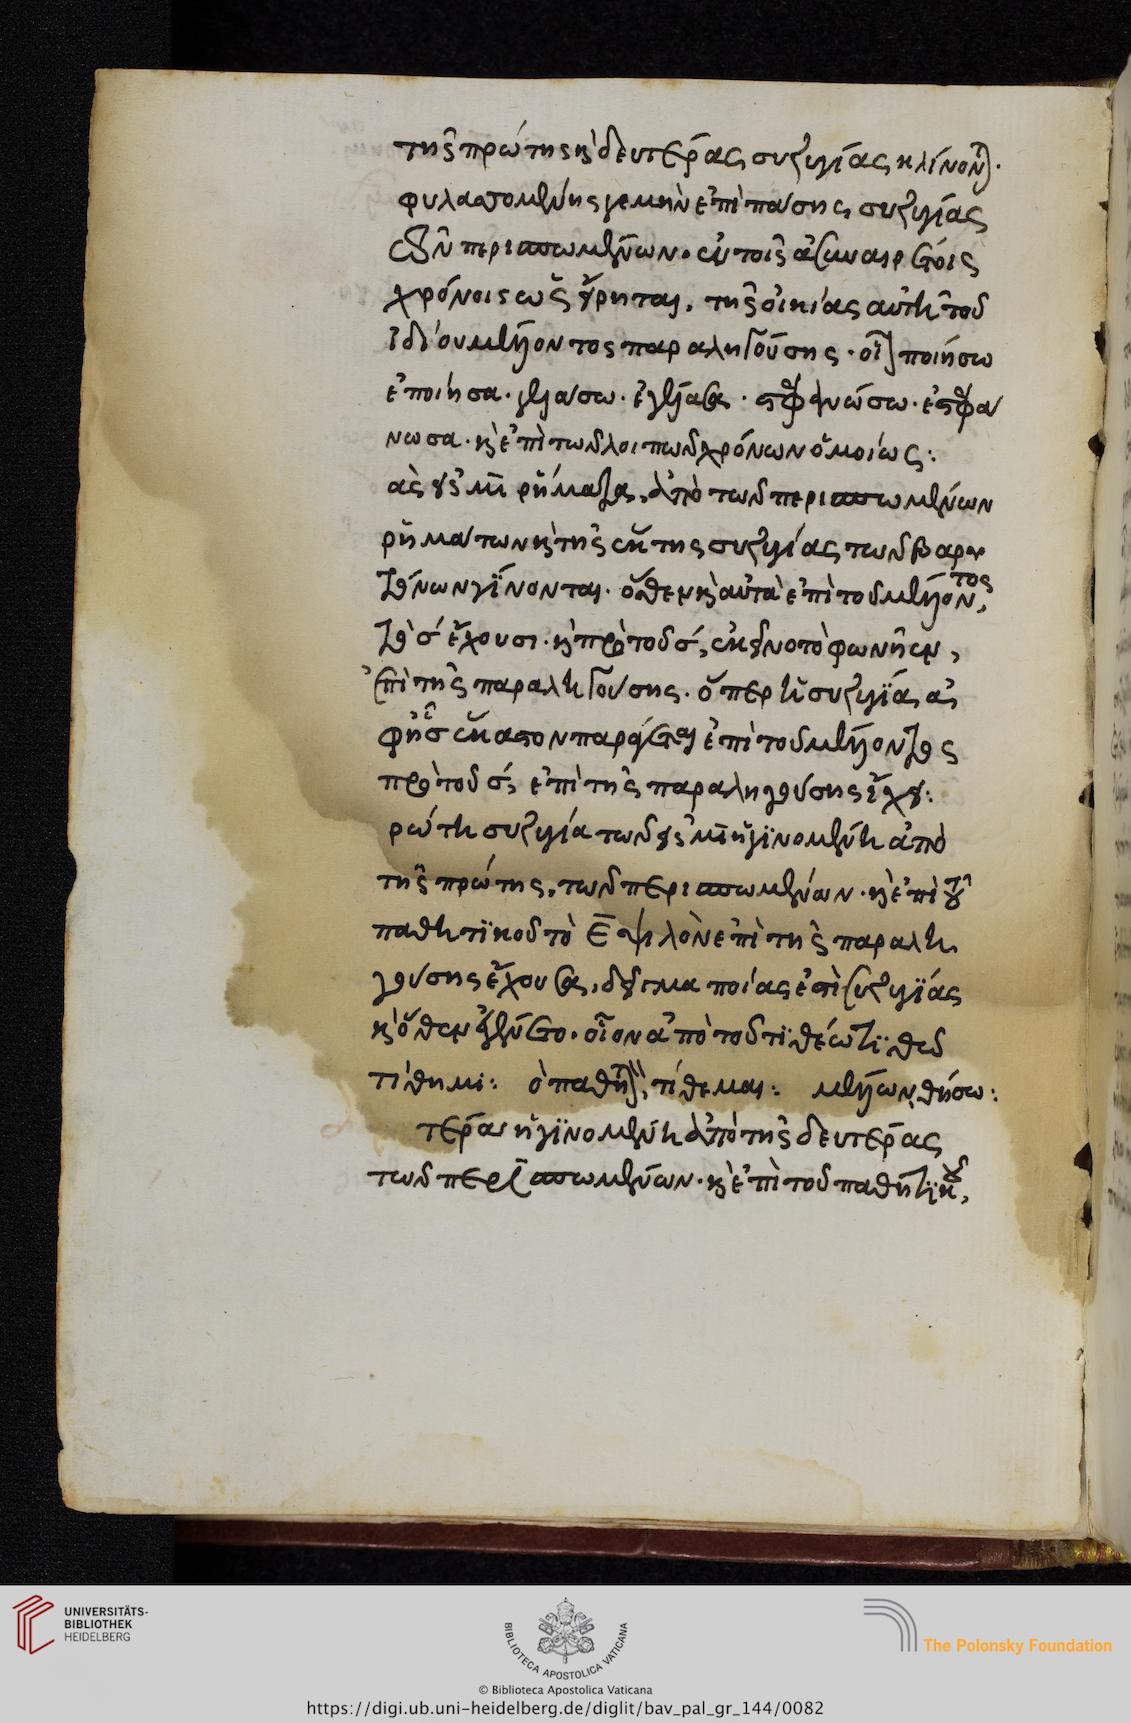 τῆς πρώτης κὶ δευτέρας συζυγίας κλίνονται.
φυλαττομένης γε μὴν ἐπὶ πάσης συζυγίας
τῶν περισπωμένων. ἐν τοῖς ἀσυναιρέτοις
χρόνοις ὡς εἴρηται, τῆς οἰκείας αὐτῆ τοῦ
ἰδίου μέλλοντος παραληγούσης. οἷον ποιήσω
ἐποίησα. γελάσω. ἐγέλασα. στεφανώσω. ἐστεφά
νωσα. κὶ ἐπὶ τῶν λοιπῶν χρόνων ὁμοίως:
τὰ εἰς μι ρήματα, ἀπὸ τῶν περισπωμένων
ρημάτων κὶ τῆς ἕκτης συζυγίας τῶν βαρυ
τόνων γίνονται. ὅθεν κὶ αὐτὰ ἐπὶ τοῦ μέλλοντος,
τὸ σ ἔχουσι. κὶ πρὸ τοῦ σ, ἐκεῖνο τὸ φωνῆεν,
ἐπὶ τῆς παραληγούσης. ὅπερ ἡ συζυγία ἀ
φ' ἧς ἕκαστον παράγεται ἐπὶ τοῦ μέλλοντος
πρὸ τοῦ σ, ἐπὶ τῆς παραληγούσης εἶχε:
ρώτη συζυγία τῶν εἰς μι ἡ γινομένη ἀπὸ
τῆς πρώτης, τῶν περισπωμένων. κὶ ἐπὶ τοῦ
παθητικοῦ τὸ ε ψιλὸν ἐπὶ τῆς παραλη
γούσης ἔχουσα, δεῖγμα ποίας ἐστὶ συζυγίας
κὶ ὅθεν ἐγένετο. οἷον ἀπὸ τοῦ τιθέω τιθῶ
τίθημι: ὁ παθητικὸς, τίθεμαι: μέλλων, θήσω:
τέρα ἡ γινομένη ἀπὸ τῆς δευτέρας
τῶν περισπωμένων. κὶ ἐπὶ τοῦ παθητικοῦ,
UNIVERSITÄTS-
BIBLIOTHEK
HEIDELBERG
BIBLIOTECA APOSTOLICA VATICANA
The Polonsky Foundation
© Biblioteca Apostolica Vaticana
https://digi.ub.uni-heidelberg.de/diglit/bav_pal_gr_144/0082